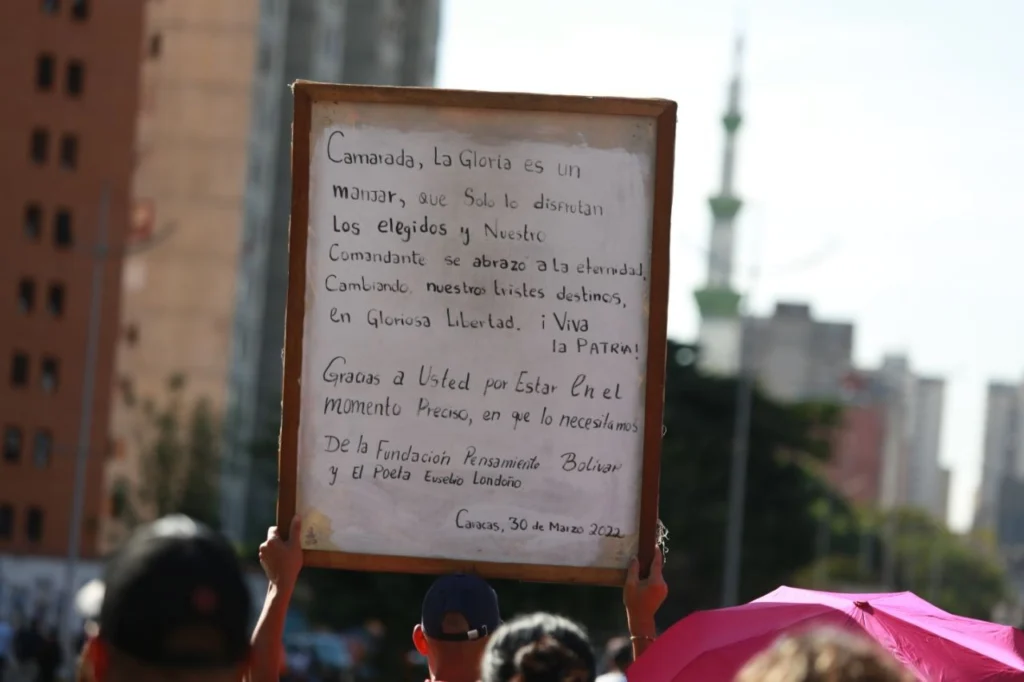 Camarada, La Gloria es un
manjar, que Solo lo disfrutan
Los elegidos y Nuestro
Comandante se abrazo a la eternidad,
Cambiando nuestros tristes destinos,
en Gloriosa Libertad. ¡Viva
la PATRIA!
Gracias a Usted por Estar En el
momento Preciso, en que lo necesitamos
De la Fundación Pensamiento Bolivar
y El Poeta Euselio Londoño
Caracas, 30 de Marzo 2022